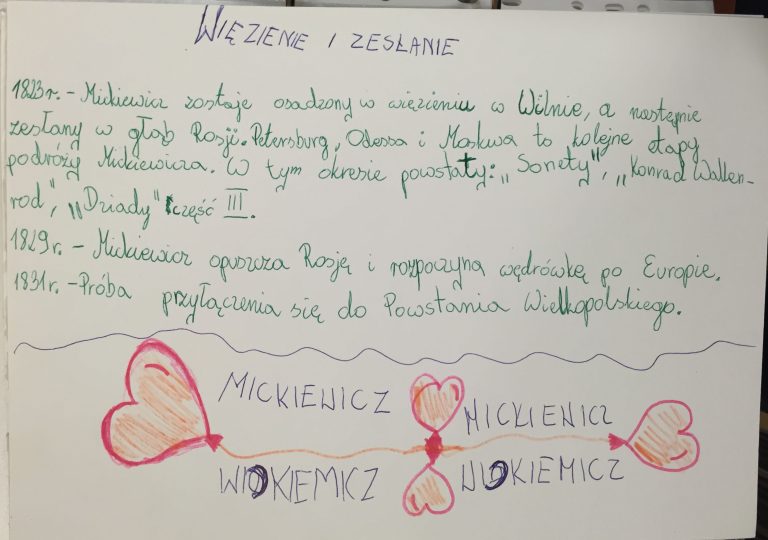 WIĘZIENIE I ZESŁANIE
1823r. - Mickiewicz zostaje osadzony w więzieniu w Wilnie, a następnie
zesłany w głąb Rosji. Petersburg, Odessa i Moskwa to kolejne etapy
podróży Mickiewicza. W tym okresie powstały: „Sonety", „Konrad Wallen-
rod", „Dziady" część III.
1829r. - Mickiewicz opuszcza Rosję i rozpoczyna wędrówkę po Europie.
1831r. - Próba przyłączenia się do Powstania Wielkopolskiego.
MICKIEWICZ